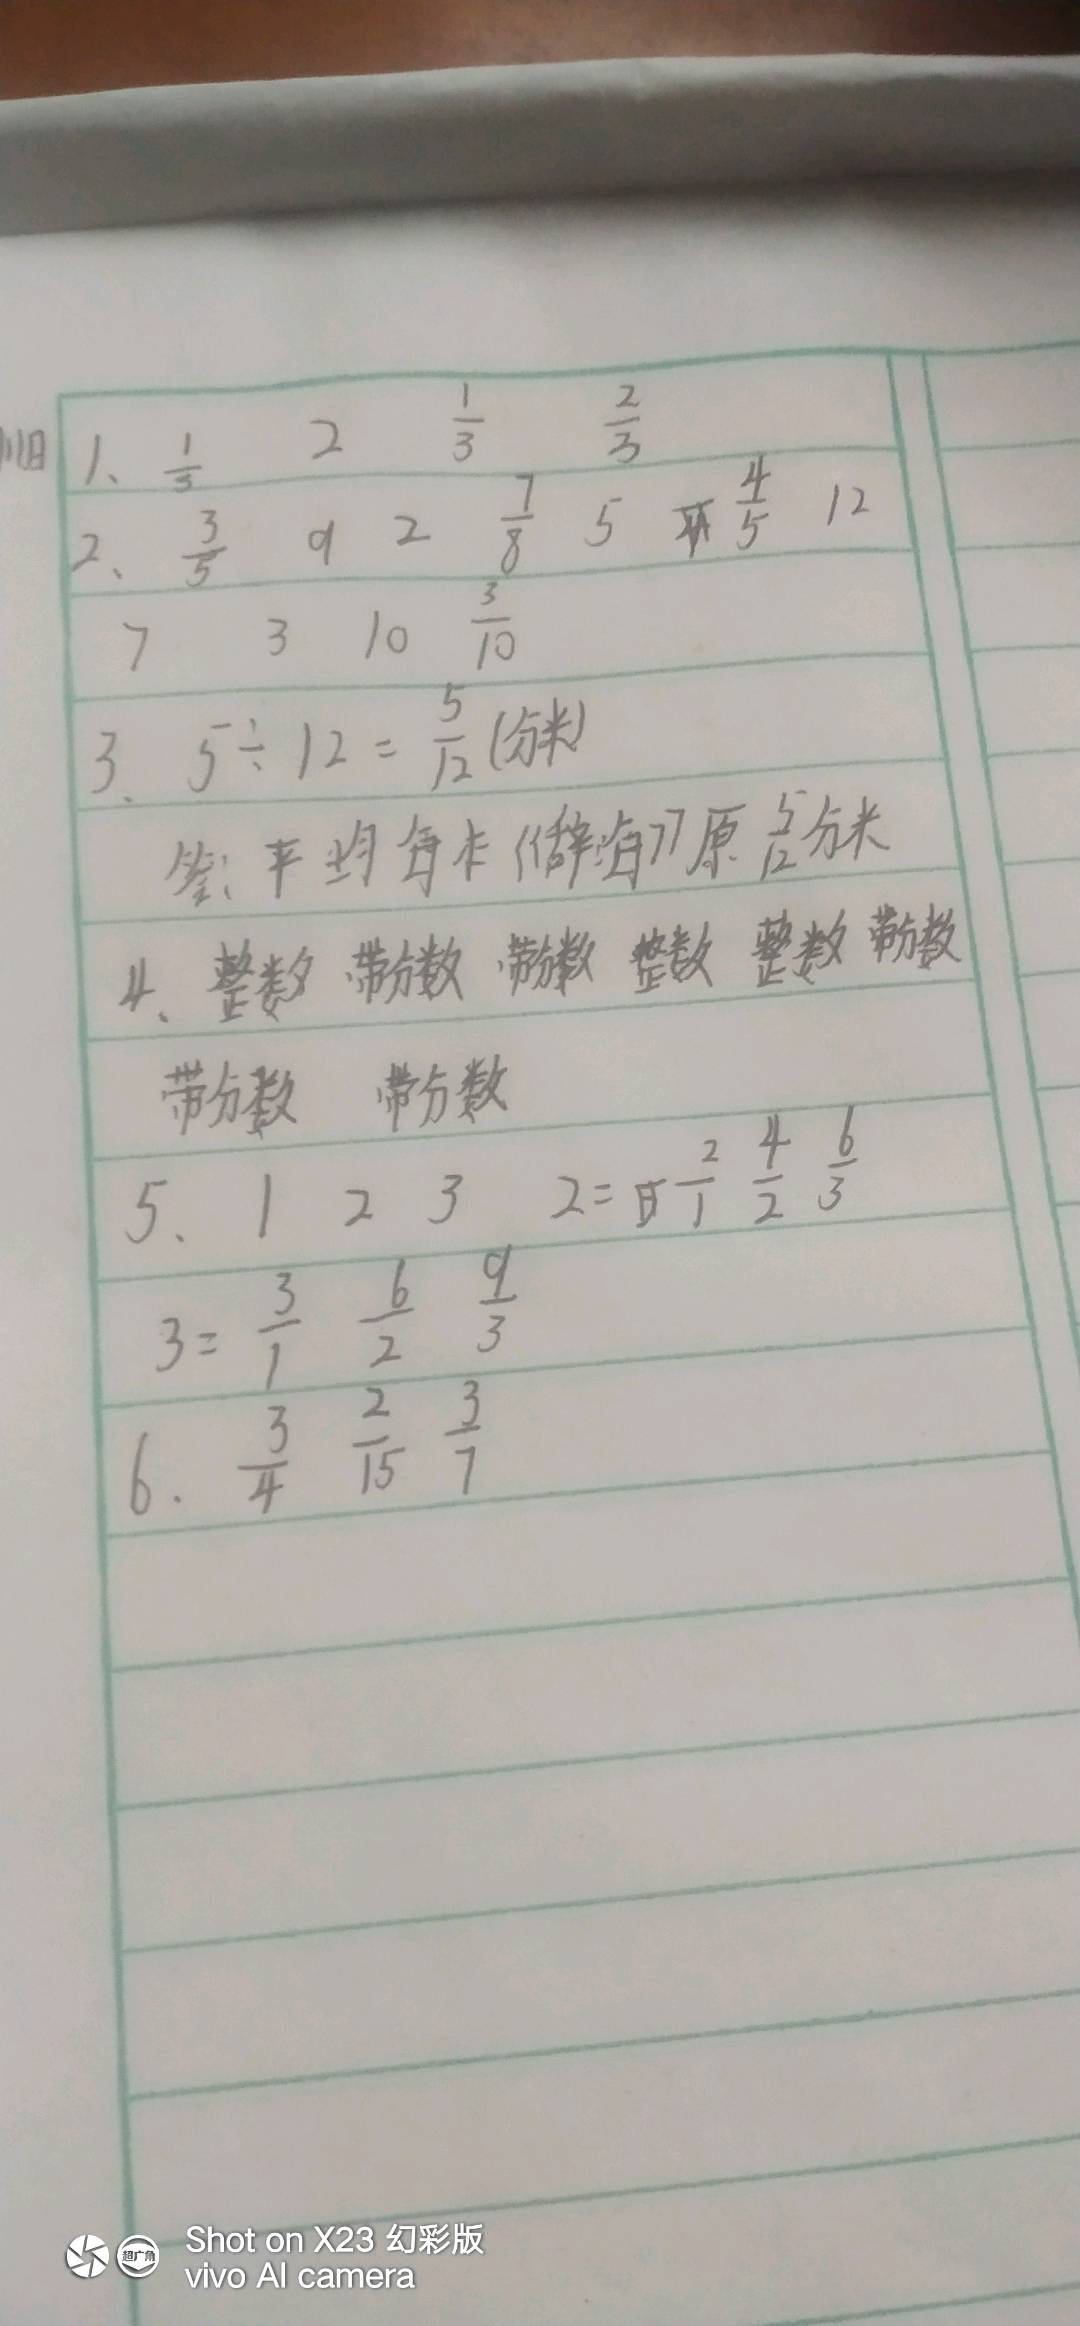 11日 1、 1/3 2 1/3 2/3
2、 3/5 9 2 7/8 5 4/5 12
7 3 10 3/10
3、 5÷12=5/12(分米)
答:平均每本《辞海》厚5/12分米
4、整数 带分数 带分数 整数 整数 带分数
带分数 带分数
5、 1 2 3 2= 2/1 4/2 6/3
3= 3/1 6/2 9/3
6. 3/4 2/15 3/7
超广角
Shot on X23 幻彩版
vivo AI camera